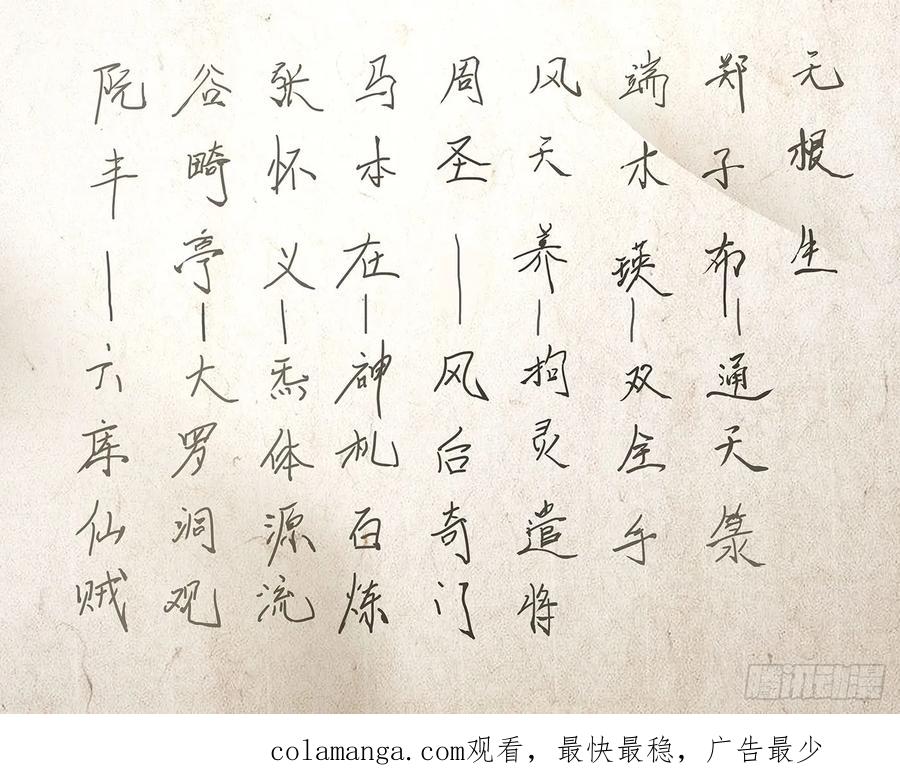 无根生
郑子布—通天箓
端木瑛—双全手
风天养—拘灵遣将
周圣—风后奇门
马本在—神机百炼
张怀义—炁体源流
谷畸亭—大罗洞观
阮丰—六库仙贼
腾讯动漫
colamanga.com观看，最快最稳，广告最少